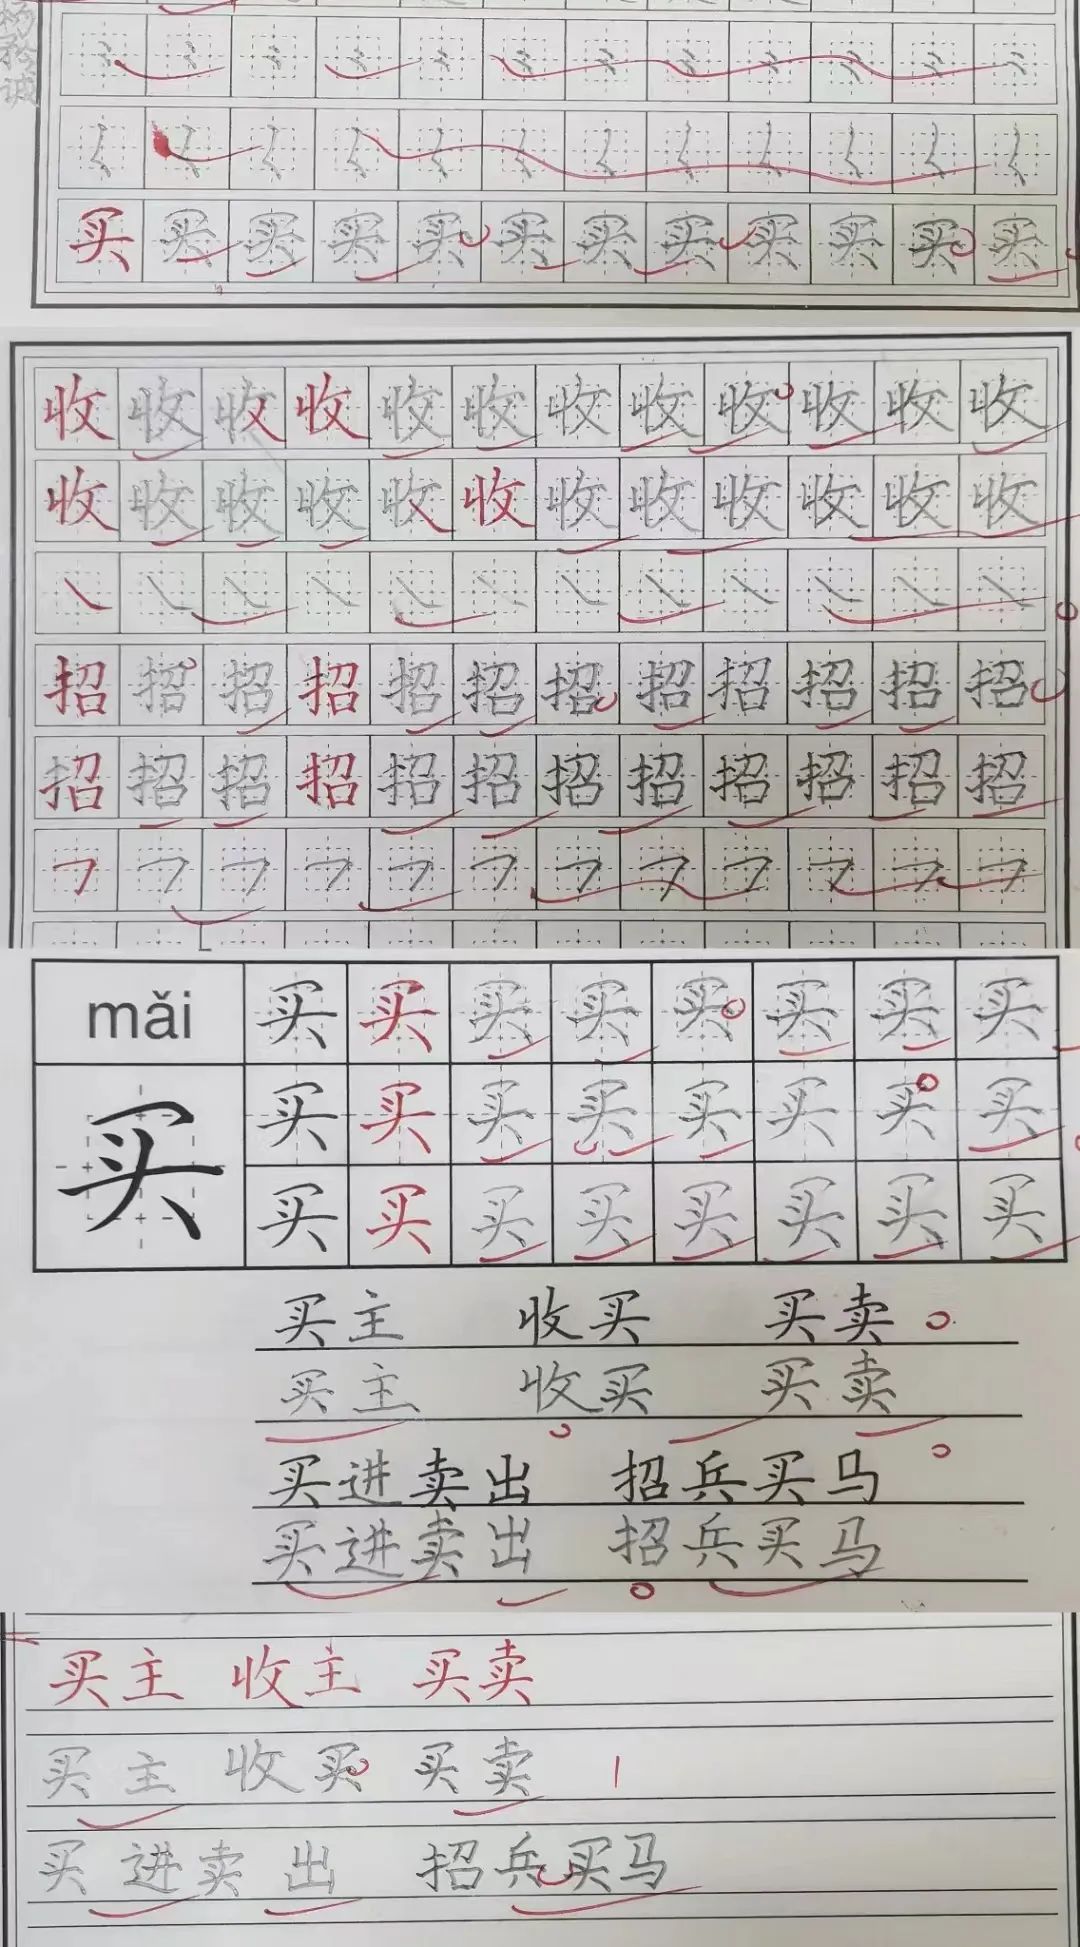 买 买 买 买 买 买 买 买 买 买 买 买
收 收 收 收 收 收 收 收 收 收 收 收
收 收 收 收 收 收 收 收 收 收 收 收
招 招 招 招 招 招 招 招 招 招 招 招
招 招 招 招 招 招 招 招 招 招 招 招
mǎi 买 买 买 买 买 买 买 买
买 买 买 买 买 买 买 买 买
买 买 买 买 买 买 买 买
买主 收买 买卖
买主 收买 买卖
买进卖出 招兵买马
买进卖出 招兵买马
买主 收主 买卖
买主 收买 买卖
买进卖出 招兵买马